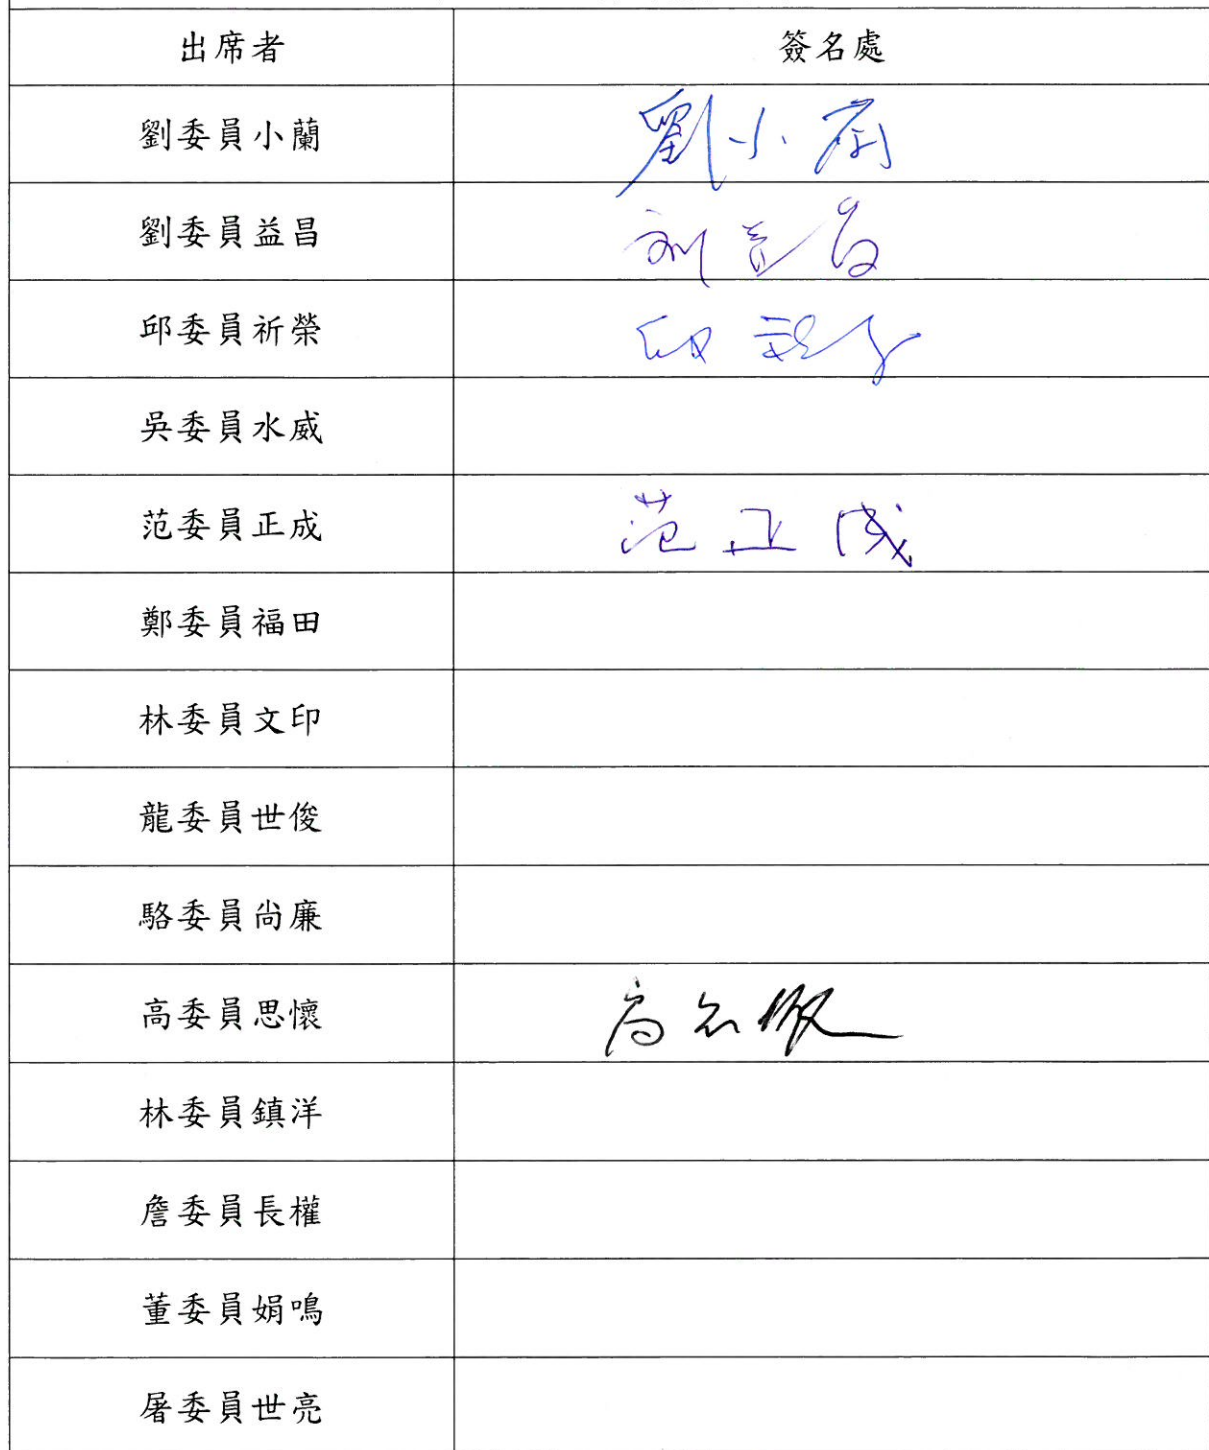 出席者 簽名處
劉委員小蘭 劉小蘭
劉委員益昌 刘益昌
邱委員祈榮 邱祈榮
吳委員水威
范委員正成 范正成
鄭委員福田
林委員文印
龍委員世俊
駱委員尚廉
高委員思懷 高思懷
林委員鎮洋
詹委員長權
董委員娟鳴
屠委員世亮